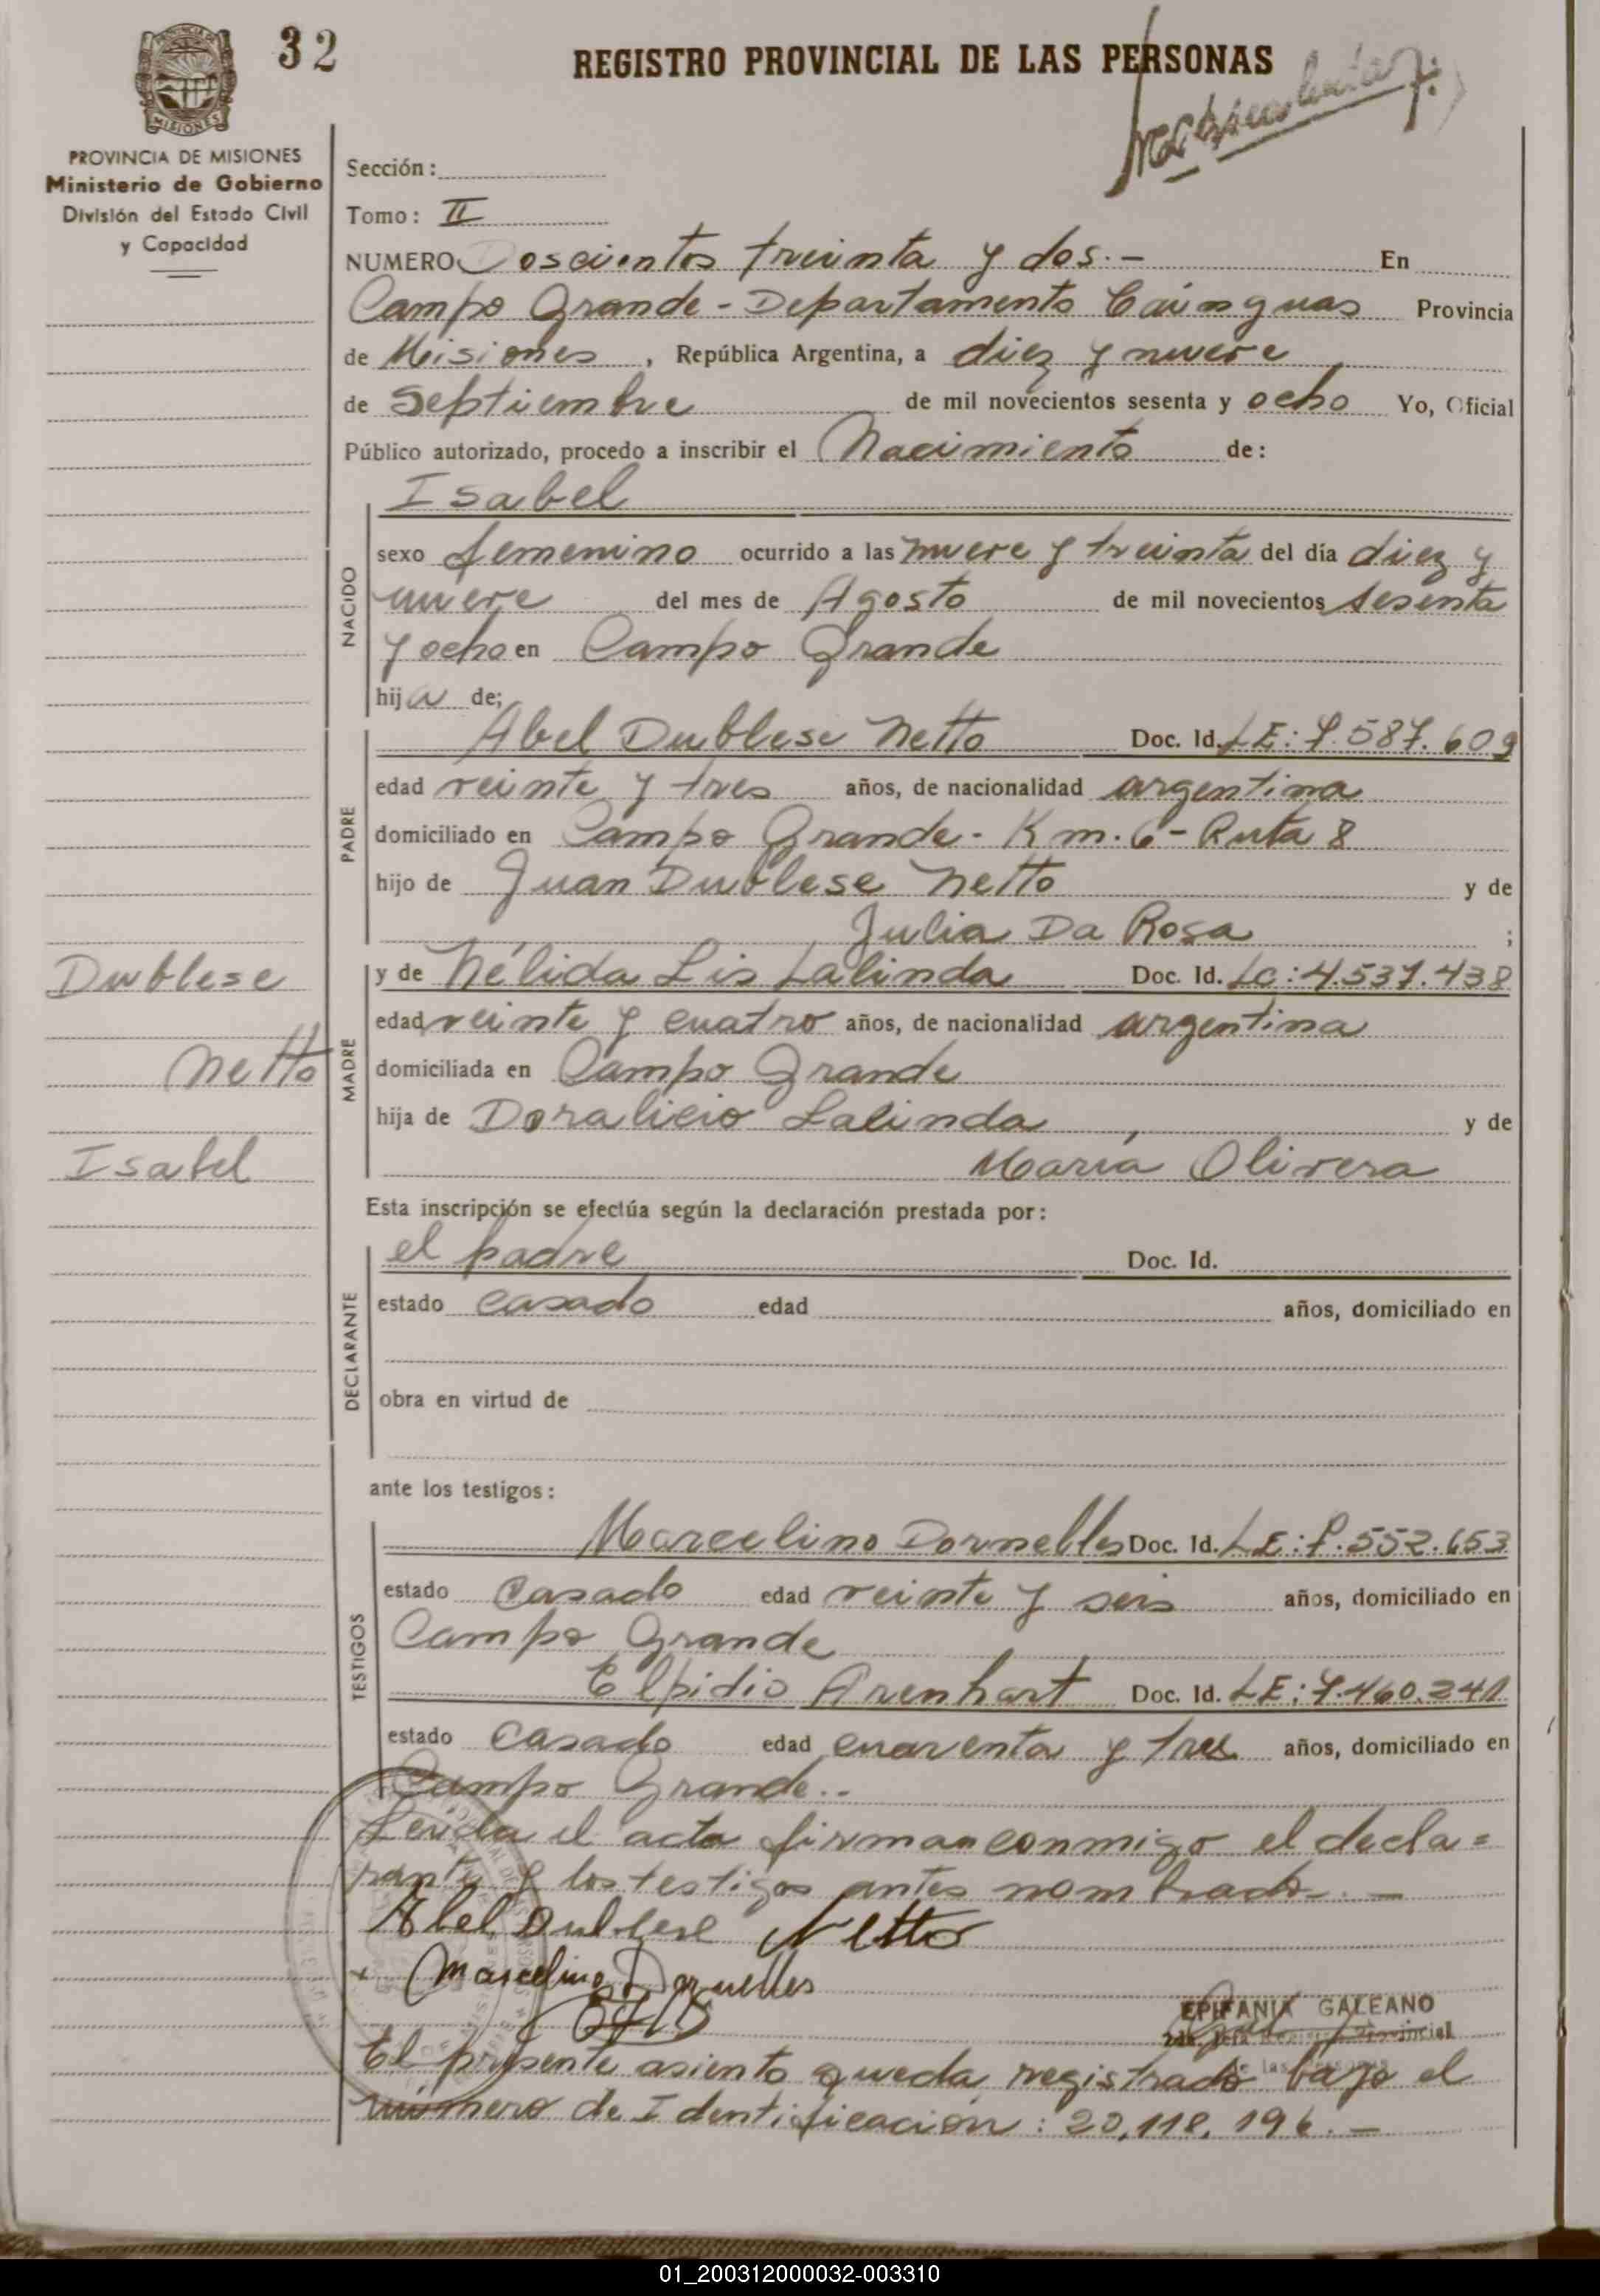 32
REGISTRO PROVINCIAL DE LAS PERSONAS
MISIONES
PROVINCIA DE MISIONES
Ministerio de Gobierno
División del Estado Civil
y Capacidad
Sección:
Tomo: II
NUMERO Doscientos treinta y dos.- En
Campo Grande - Departamento Cainguas Provincia
de Misiones, República Argentina, a diez y nueve
de Septiembre de mil novecientos sesenta y ocho Yo, Oficial
Público autorizado, procedo a inscribir el Nacimiento de:
Isabel
NACIDO
sexo femenino ocurrido a las nueve y treinta del día diez y
nueve del mes de Agosto de mil novecientos sesenta
y ocho en Campo Grande
hija de;
PADRE
Abel Dublese Netto Doc. Id. LE: 7.587.609
edad veinte y tres años, de nacionalidad argentina
domiciliado en Campo Grande - Km. 6 - Ruta 8
hijo de Juan Dublese Netto y de
Julia Da Rosa ;
Dublese
Netto
Isabel
MADRE
y de Nélida Lis Lalinda Doc. Id. LC: 4.537.438
edad veinte y cuatro años, de nacionalidad argentina
domiciliada en Campo Grande
hija de Doralicio Lalinda, y de
María Olivera
Esta inscripción se efectúa según la declaración prestada por:
DECLARANTE
el padre Doc. Id.
estado casado edad años, domiciliado en
obra en virtud de
ante los testigos:
TESTIGOS
Marcelino Dornelles Doc. Id. LE: 7.552.653
estado casado edad veinte y seis años, domiciliado en
Campo Grande
Elpidio Arenhart Doc. Id. LE: 7.460.241
estado casado edad cuarenta y tres años, domiciliado en
Campo Grande..
Leida el acta firman conmigo el decla=
rante y los testigos antes nombrados.-
Abel Dublese Netto
Marcelino Dornelles
EPIFANIA GALEANO
El presente asiento queda registrado bajo el
número de Identificación: 20.118.196.-
01_200312000032-003310